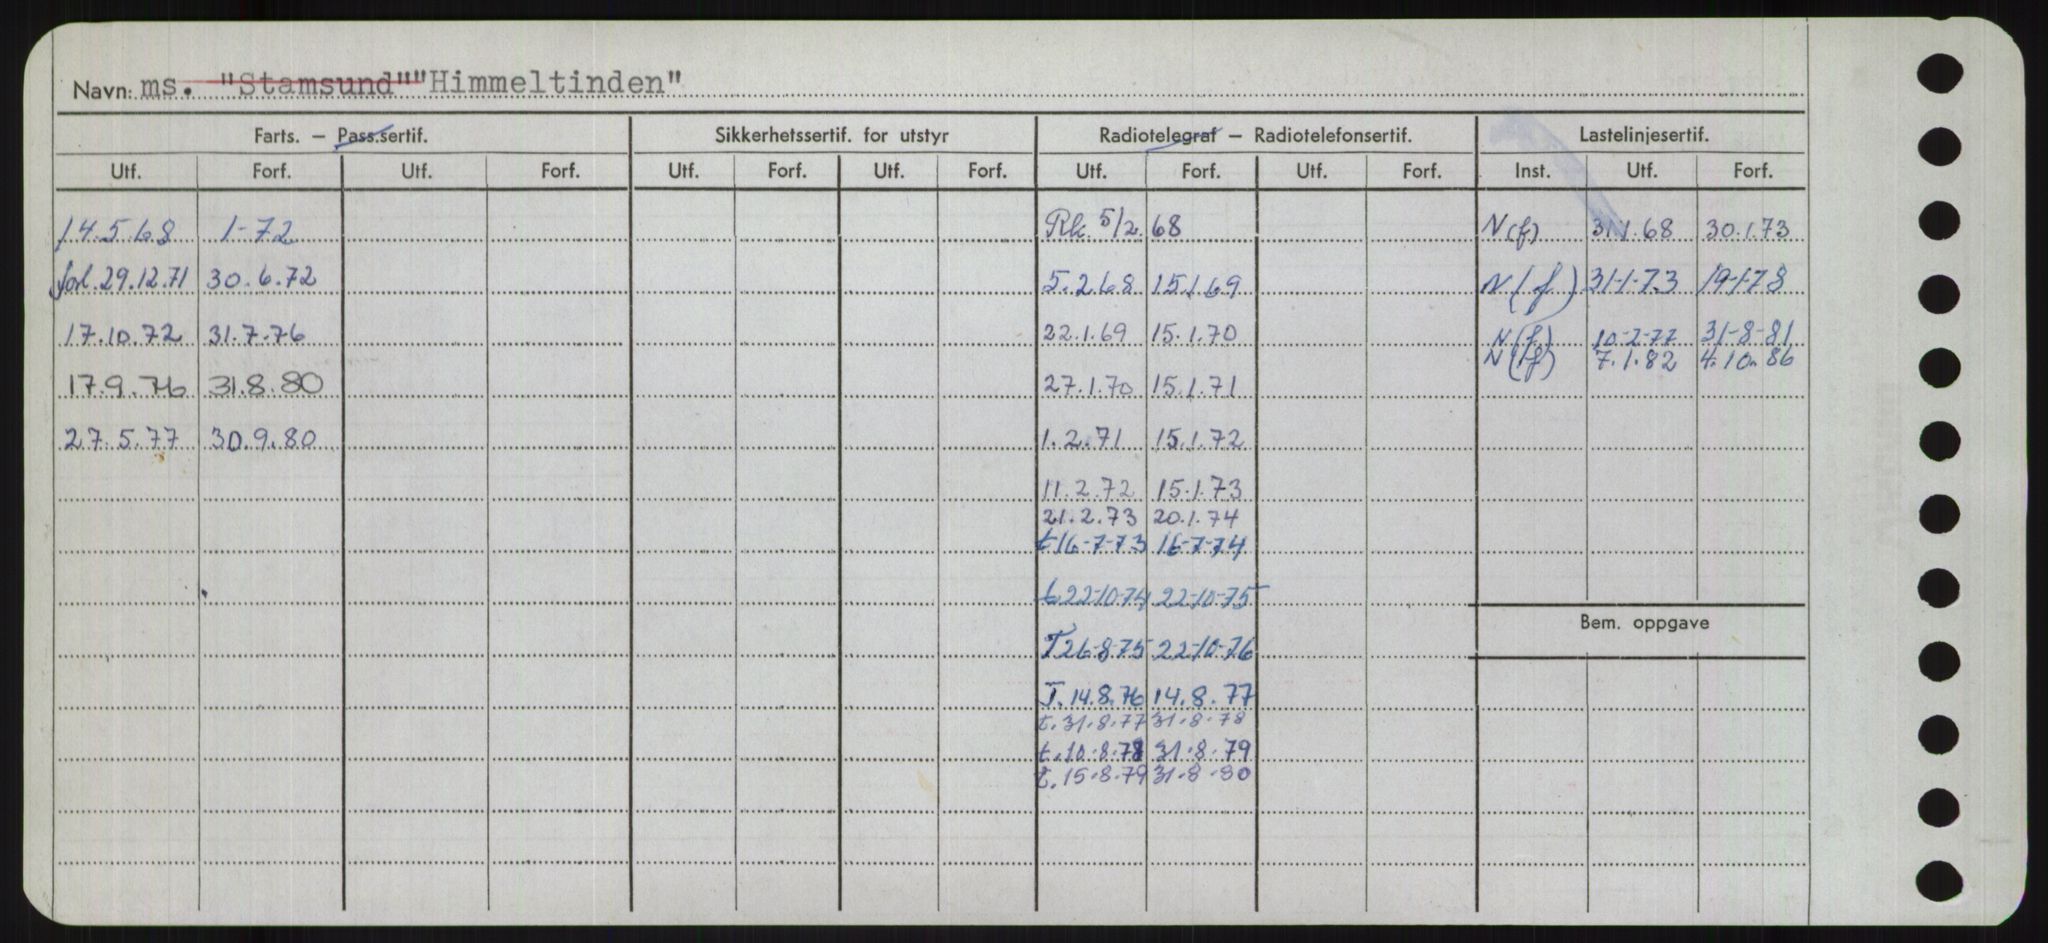 Navn: ms. "Stamsund" "Himmeltinden"
Farts. – Pass.sertif. Sikkerhetssertif. for utstyr Radiotelegraf – Radiotelefonsertif. Lastelinjesertif.
Utf. Forf. Utf. Forf. Utf. Forf. Utf. Forf. Utf. Forf. Utf. Forf. Inst. Utf. Forf.
14.5.68 1-72 Rk. 5/2.68 N(f) 31.1.68 30.1.73
forl. 29.12.71 30.6.72 5.2.68 15.1.69 N(f) 31-1-73 19-1-78
17.10.72 31.7.76 22.1.69 15.1.70 N(f) 10-2-77 31-8-81
N(f) 7.1.82 4.10.86
17.9.76 31.8.80 27.1.70 15.1.71
27.5.77 30.9.80 1.2.71 15.1.72
11.2.72 15.1.73
21.2.73 20.1.74
t16-7-73 16-7-74
t22-10-74 22-10-75
Bem. oppgave
T26-8-75 22-10-76
T.14.8.76 14.8.77
t.31.8.77 31.8.78
t.10.8.78 31.8.79
t.15.8.79 31.8.80